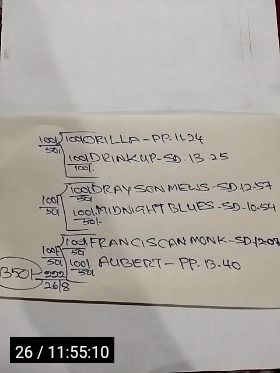 100/ 100/ ORILLA - PP. 11.24
50/
100/ DRINKUP - SD. 13.25
100/.
100/ 100/ DRAYSONMEWS - SD. 12.57
50/ 50/
100/. MIDNIGHTBLUES - SD. 10.54
50/-
100/ 100/ FRANCISCANMONK - SD. 12.07
50/ 50/
100/. AUBERT - PP. 13.40
50/
350/-
268
26 / 11:55:10